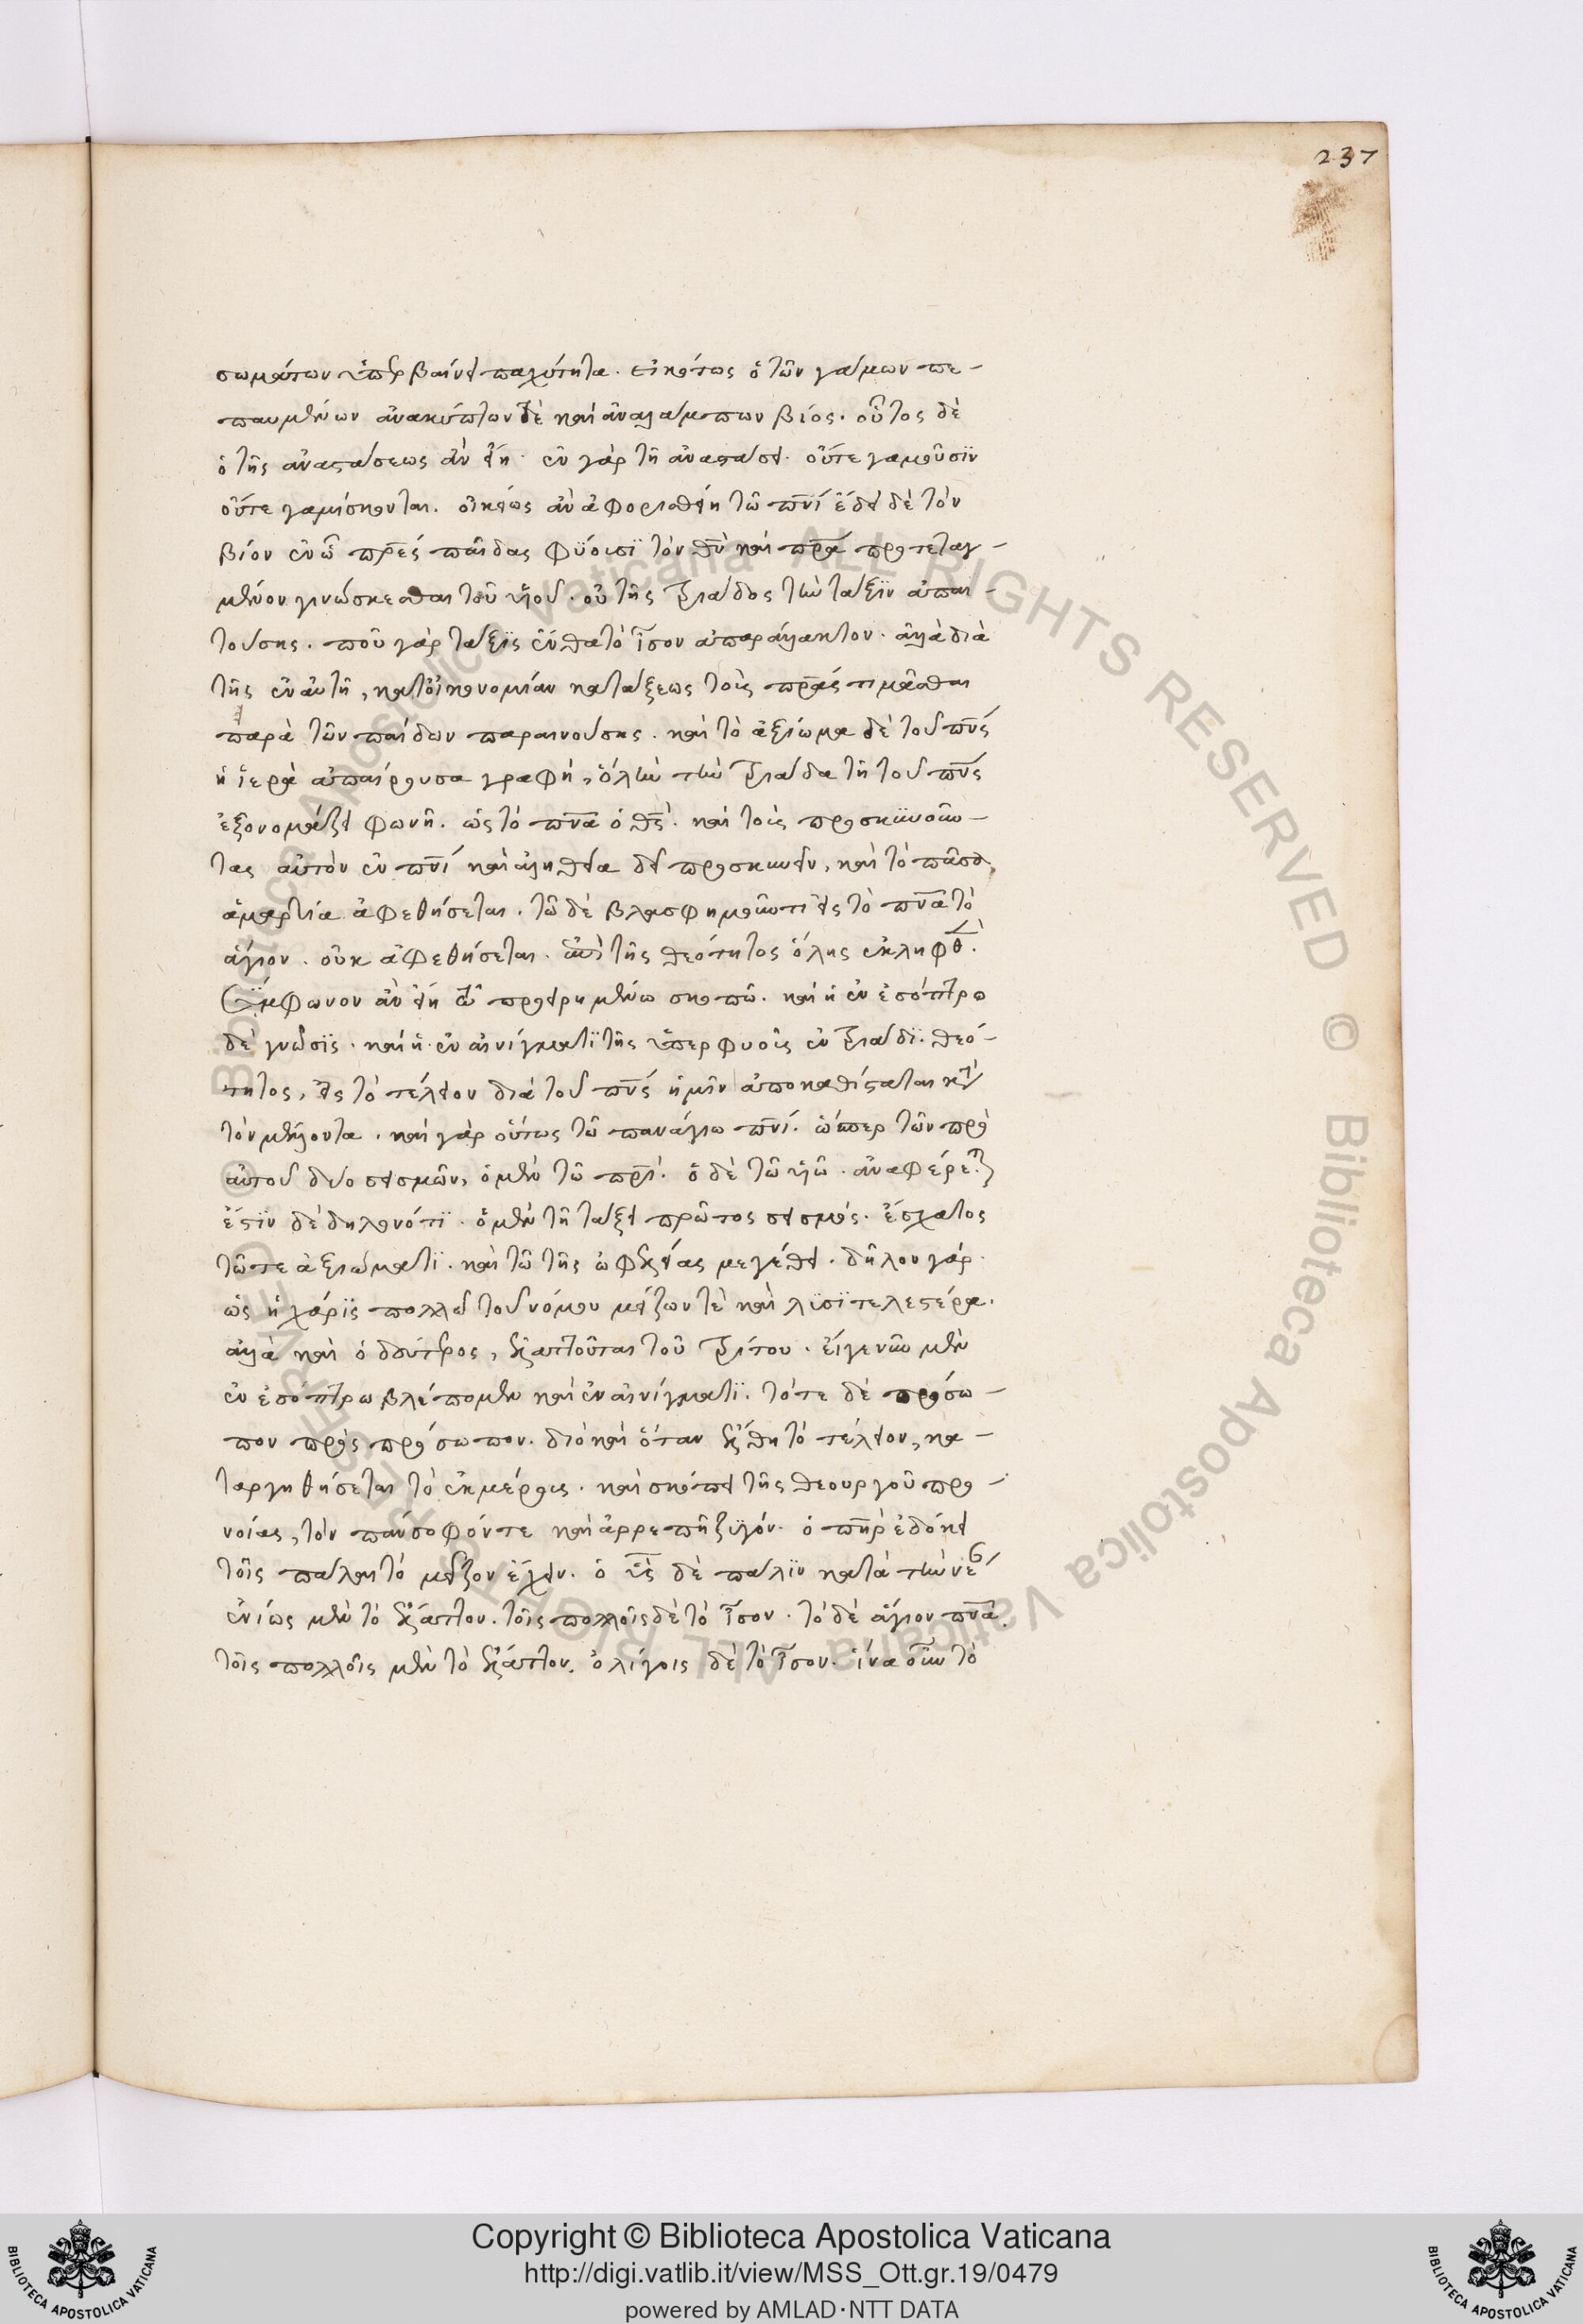 237
σωμάτων ὑπερβαίνει παχύτητα. εἰκότως ὁ τῶν γάμων πε-
παυμένων ἀνακύπτων δὲ καὶ ἀναλάμπων βίος. οὗτος δὲ
ὁ τῆς ἀναστάσεως ἂν εἴη. ἐν γὰρ τῆ ἀναστάσει. οὔτε γαμοῦσϊν
οὔτε γαμίσκονται. οἰκείως ἂν ἀφορισθείη τῶ πνί εἴδει δὲ τὸν
βίον ἐν ὧ πρες παῖδας φϋουσϊ τὸν θν καὶ πρα προτεταγ-
μένον γινώσκεσθαι τοῦ υἱοῦ. οὐ τῆς τριάδος τὴν τάξϊν ἀπαι-
τούσης. ποῦ γὰρ τάξϊς ἔνθα τὸ ἶσον ἀπαράλλακτον. ἀλλὰ διὰ
τῆς ἐν αὐτῆ, κατοἰκονομίαν κατατάξεως τοὺς πρας τιμᾶσθαι
παρὰ τῶν παίδων παραινούσης. καὶ τὸ ἀξίωμα δὲ τοῦ πνς
ἡ ἱερὰ ἀπαίρουσα γραφή, ὅλην τὴν τριάδα τῆ τοῦ πνς
ἐξονομάζει φωνῆ. ὡς τό πνα ὁ θς. καὶ τοὺς προσκϋνοῦν-
τας αὐτὸν ἐν πνί καὶ ἀληθεία δεῖ προσκυνεῖν, καὶ τὸ πᾶσα
ἁμαρτία ἀφεθήσεται. τῶ δὲ βλασφημοῦντι εἰς τὸ πνα τὸ
ἅγιον. οὐκ ἀφεθήσεται. τῆς θεότητος ὅλης ἐκληφθ.
Σϋμφωνον ἂν εἴη τῶ προειρημένω σκοπῶ. καὶ ἡ ἐν ἐσόπτρω
δὲ γνῶσϊς. καὶ ἡ ἐν αἰνίγματϊ τῆς ὑπερφυοῦς ἐν τριάδϊ θεό-
τητος, εἰς τὸ τέλειον διὰ τοῦ πνς ἡμῖν ἀποκαθίσταται κτ
τὸν μέλλοντα. καὶ γὰρ οὕτως τῶ παναγίω πνί. ὥσπερ τῶν πρὸ
αὐτοῦ δύο σεισμῶν, ὁ μὲν τῶ πρι. ὁ δὲ τῶ υἱῶ. ἀναφέρεται
ἔστϊν δὲ δηλονότϊ. ὁ μὲν τῆ τάξει πρῶτος σεισμός. ἔσχατος
τῶ τε ἀξιώματϊ. καὶ τῶ τῆς ὠφελείας μεγέθει. δῆλον γάρ.
ὡς ἡ χάρϊς πολλῶ τοῦ νόμου μείζων τὲ καὶ λϋσϊτελεστέρα.
ἀλλὰ καὶ ὁ δεύτερος, ἐλαττοῦται τοῦ τρίτου. εἴγε νῦν μὲν
ἐν ἐσόπτρω βλέπομεν καὶ ἐν αἰνίγματϊ. τότε δὲ πρόσω-
πον πρὸς πρόσωπον. διὸ καὶ ὅταν ἔλθη τὸ τέλειον, κα-
ταργηθήσεται τὸ ἐκ μέρους. καὶ σκόπει τῆς θεουργοῦ προ-
νοίας, τὸν πάνσοφόν τε καὶ ἀρρεπῆ ζϋγόν. ὁ πηρ ἐδόκει
τοῖς πάλαι τὸ μεῖζον ἔχειν. ὁ υς δὲ πάλϊν κατὰ τὴν νέ
ἐνίοις μὲν τὸ ἔλαττον. τοῖς πολλοῖς δὲ τὸ ἶσον. τὸ δὲ ἅγιον πνα.
τοῖς πολλοῖς μὲν τὸ ἔλαττον. ὀλίγοις δὲ τὸ ἶσον. ἵνα οὖν τὸ
Copyright © Biblioteca Apostolica Vaticana
http://digi.vatlib.it/view/MSS_Ott.gr.19/0479
powered by AMLAD·NTT DATA
BIBLIOTECA APOSTOLICA VATICANA
BIBLIOTECA APOSTOLICA VATICANA